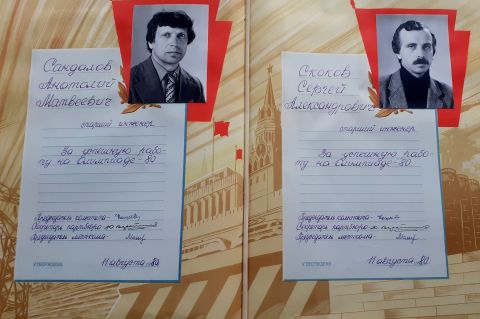 Сандалов
Анатолий
Матвеевич
старший инженер
За успешную рабо-
ту на Олимпиаде-80.
Председатель комитета-
Секретарь партбюро-
Председатель месткома-
УТВЕРЖДЕНО
11 августа 80
Скоков
Сергей
Александрович
старший инженер
За успешную рабо-
ту на Олимпиаде-80.
Председатель комитета-
Секретарь партбюро-
Председатель месткома-
УТВЕРЖДЕНО
11 августа 80